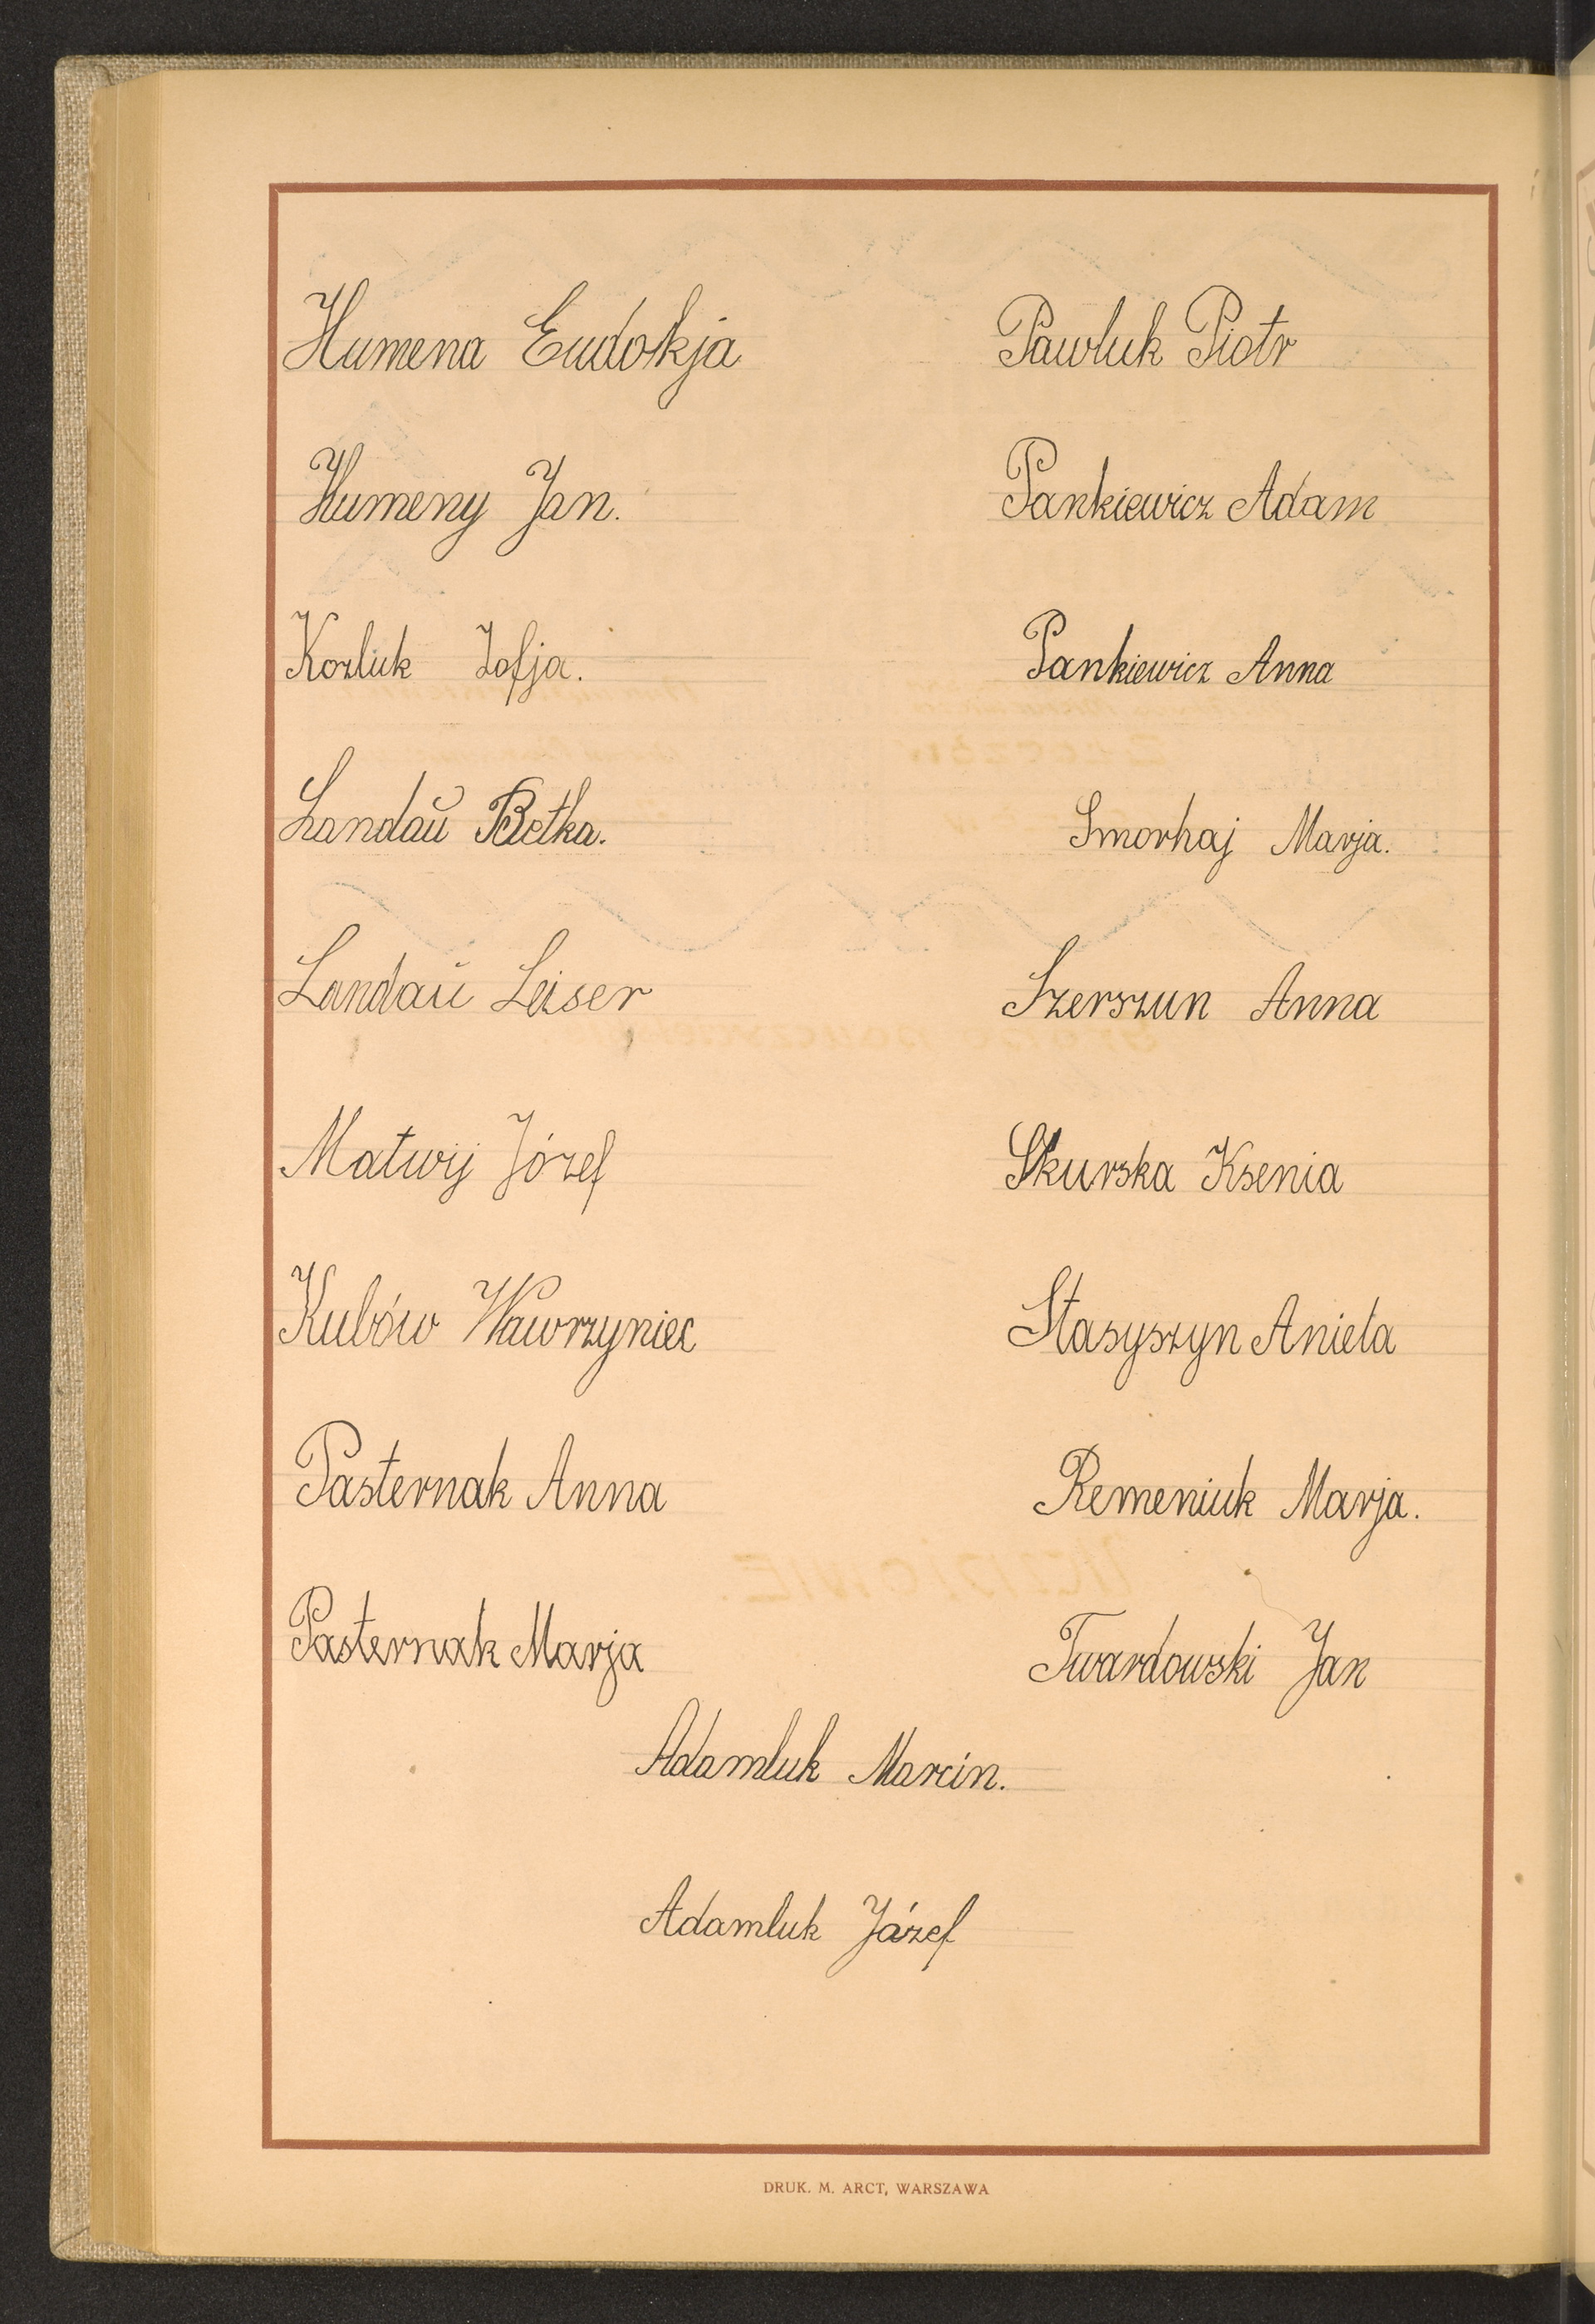 Humena Eudokja
Humeny Jan.
Kozluk Zofja.
Landaŭ Betka.
Landaŭ Leiser
Matwij Józef
Kubów Wawrzyniec
Pasternak Anna
Pasternak Marja
Pawluk Piotr
Pankiewicz Adam
Pankiewicz Anna
Smorhaj Marja.
Szerszun Anna
Skurska Ksenia
Stasyszyn Aniela
Remeniuk Marja.
Twardowski Jan
Adamluk Marcin.
Adamluk Józef
DRUK. M. ARCT, WARSZAWA